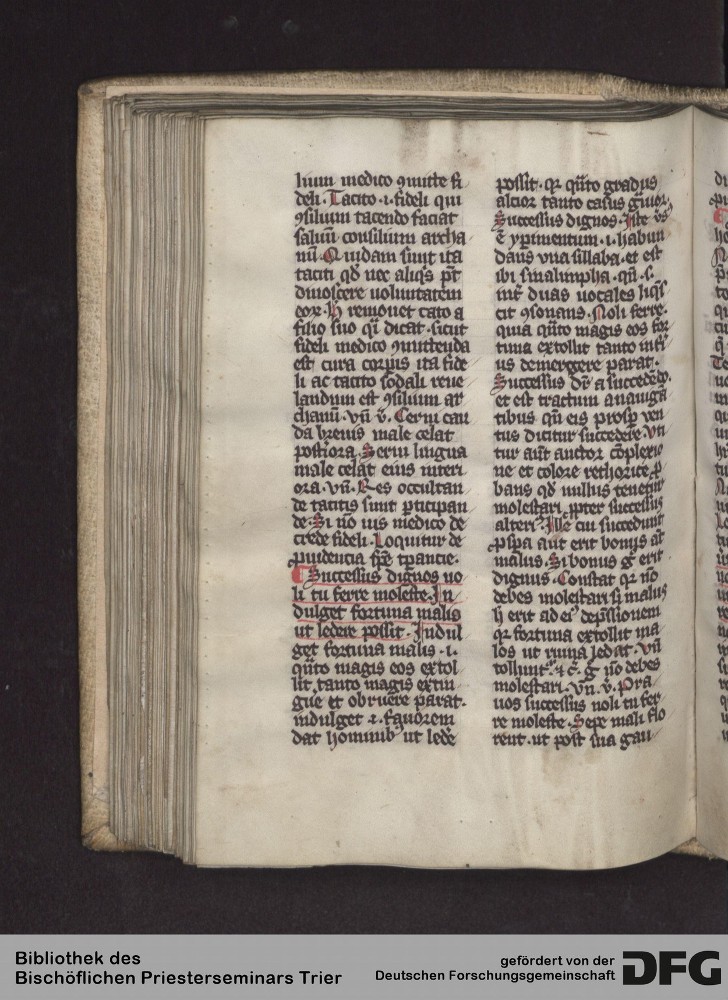 lium medico ɔmitte fi
deli. Tacito .i. fideli qui
ɔsilium tacendo faciat
saluū consilium archa
nū. Quidam sunt ita
taciti qd̕ nec aliq̕s pt̄
dinoscere voluntatem
eoꝝ. h̕ remouet cato a
filio suo qn̄ dicat. sicut
fideli medico ɔmittenda
est cura corpis ita fide
li ac tacito sodali reue
landum est ɔsilium ar
chanū. vn̄ v̄. Cerni cau
da breuis male celat
post̕iora. Seruī lingua
male celat eius interi
ora. vn̄. Res occultan
de tacitis sunt pticipan
de. Si nō vis medico de
crede fideli. Loquitur de
prudencia
Successus dignos no
li tu ferre moleste. In
dulget fortuna malis
ut ledere possit. Indul
get fortuna malis .i.
qn̄to magis eos extol
lit, tanto magis extin
gue et obruere parat.
indulget .i. fauorem
dat hominib' ut lede̕
possit. qꝛ qn̄to gradus
alcior tanto casus g̕uior.
Successus dignos. Iste v̕s
ē yp̕imentum .i. habun
dans vna sillaba. et est
ibi sinalimpha. qn̄ .s.
int̕ duas uocales
cit ɔsonans. Noli ferre.
quia qn̄to magis eos for
tuna extollit tanto
us demergere parat.
Successus dr̄ a succede̕do.
et est tractum a nauiga
tibus qn̄ eis prosp̕ ven
tus dicitur succedere. vn̄
tur aūt auctor cōplexio
ne et colore rethorice, p
bans qd̕ nullus tenetur
molestari ppter successus
alteri'. Ille cui succedunt
pspa aut erit bonus aūt
malus. Si bonus g̕ erit
dignus. Constat qꝛ nō
debes molestari si malus
h̕ erit ad ei' dep̄ssionem
qꝛ fortuna extollit ma
los ut ruina ledat. vn̄
tollunt̕. ⁊ c̄. g̕ nō debes
molestari. vn̄. v̄. Pra
uos successus noli tu fer
re moleste. Sepe mali flo
rent. ut post sua gau
Bibliothek des
Bischöflichen Priesterseminars Trier
gefördert von der
Deutschen Forschungsgemeinschaft
DFG